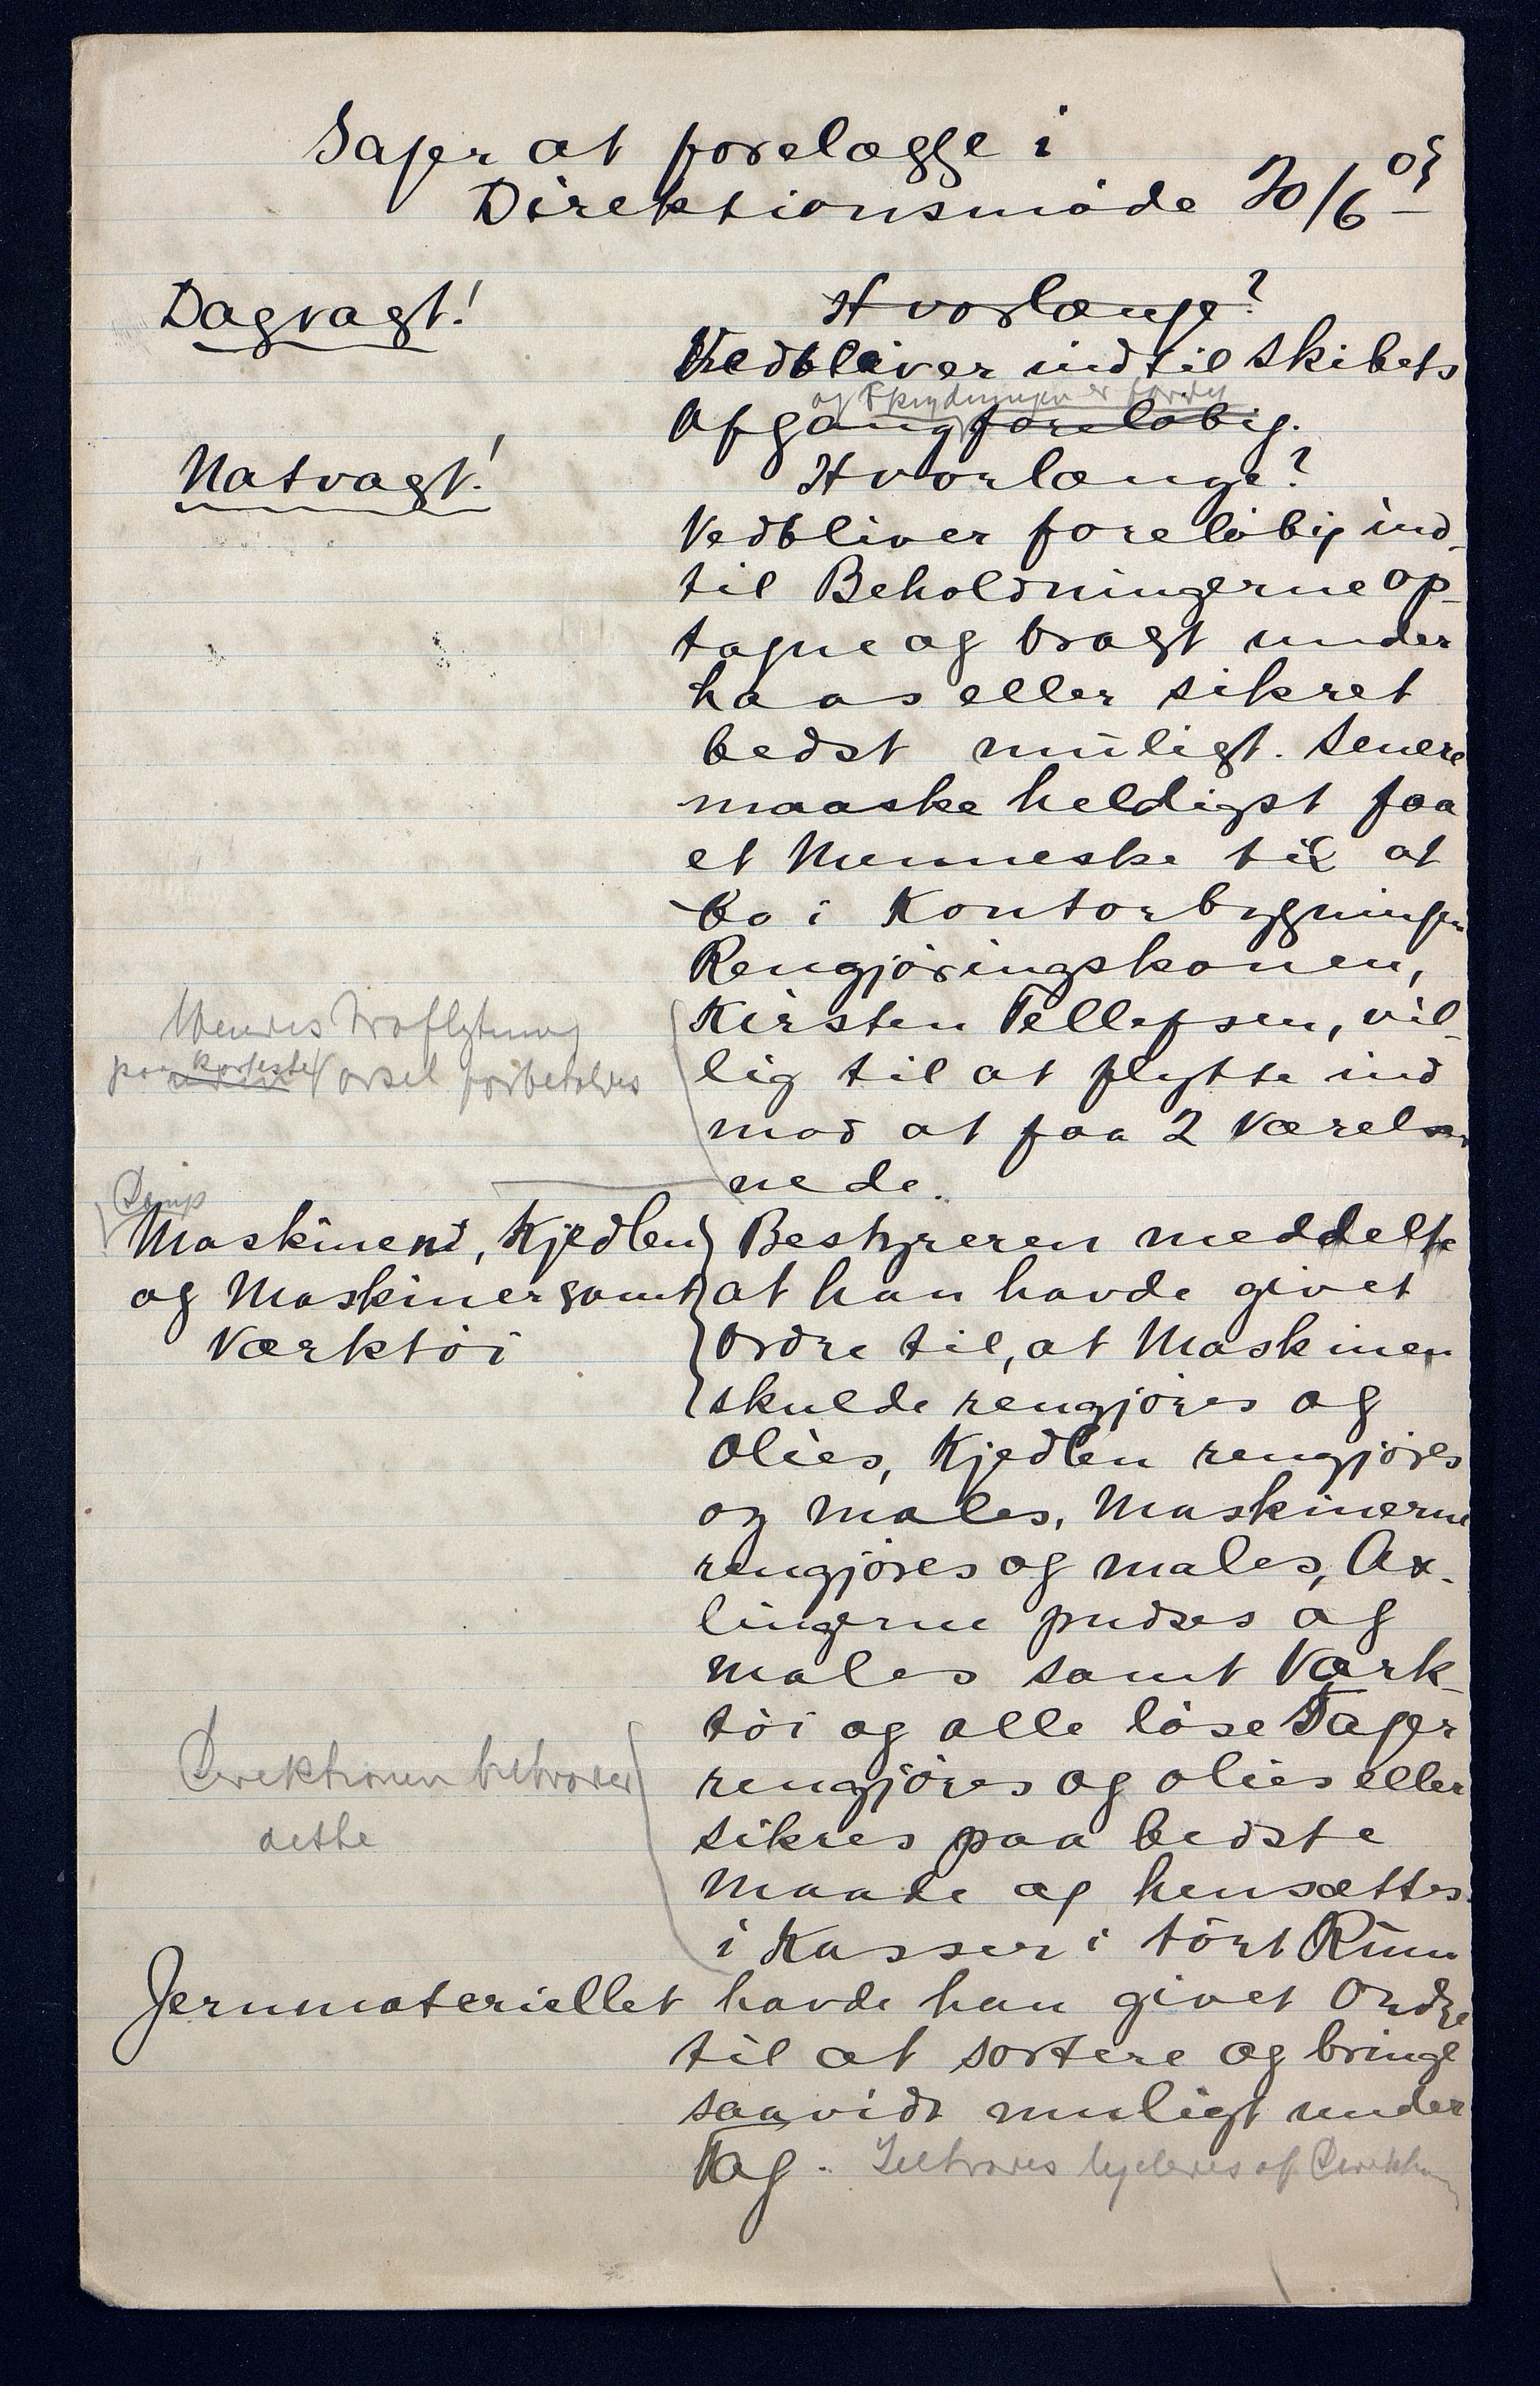 Sager at forelægge i
Direktionsmöde 20/6 03
Dagvagt!
Hvorlænge?
Vedbliver indtil Skibets
og Skydningen er færdig
Afgang foreløbig.
Natvagt!
Hvorlænge?
Vedbliver foreløbig ind-
til Beholdningerne op-
tagne og bragt under
haas eller sikret
bedst muligt. Senere
maaske heldigst faa
et Menneske til at
bo i Kontorbygningen
Rengjøringskonen,
Kirsten Tellefsen, vil-
lig til at flytte ind
mod at faa 2 Værelser
nede.
Uendres fraflytning
paa korteste Varsel forbeholdes
Damp
Maskinen, Kjedlen
og Maskiner samt
Værktöi
Bestyreren meddelte
at han havde givet
Ordre til, at Maskinen
skulde rengjöres og
Olies, Kjedlen rengjöres
og males, Maskinerne
rengjöres og males, Ax-
lingerne pudses og
males samt Værk-
töi og alle löse Sager
rengjöres og olies eller
sikres paa bedste
Maade og hensættes
i Kasser i tört Rum
Direktionen tiltræder
dette
Jernmateriellet havde han givet Ordre
til at sortere og bringe
saavidt muligt under
Tag. Tiltrædes ligeledes af Direktionen